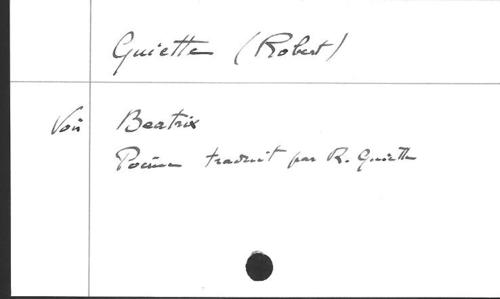 Guiette (Robert)
Voir Beatrix
Poème traduit par R. Guiette